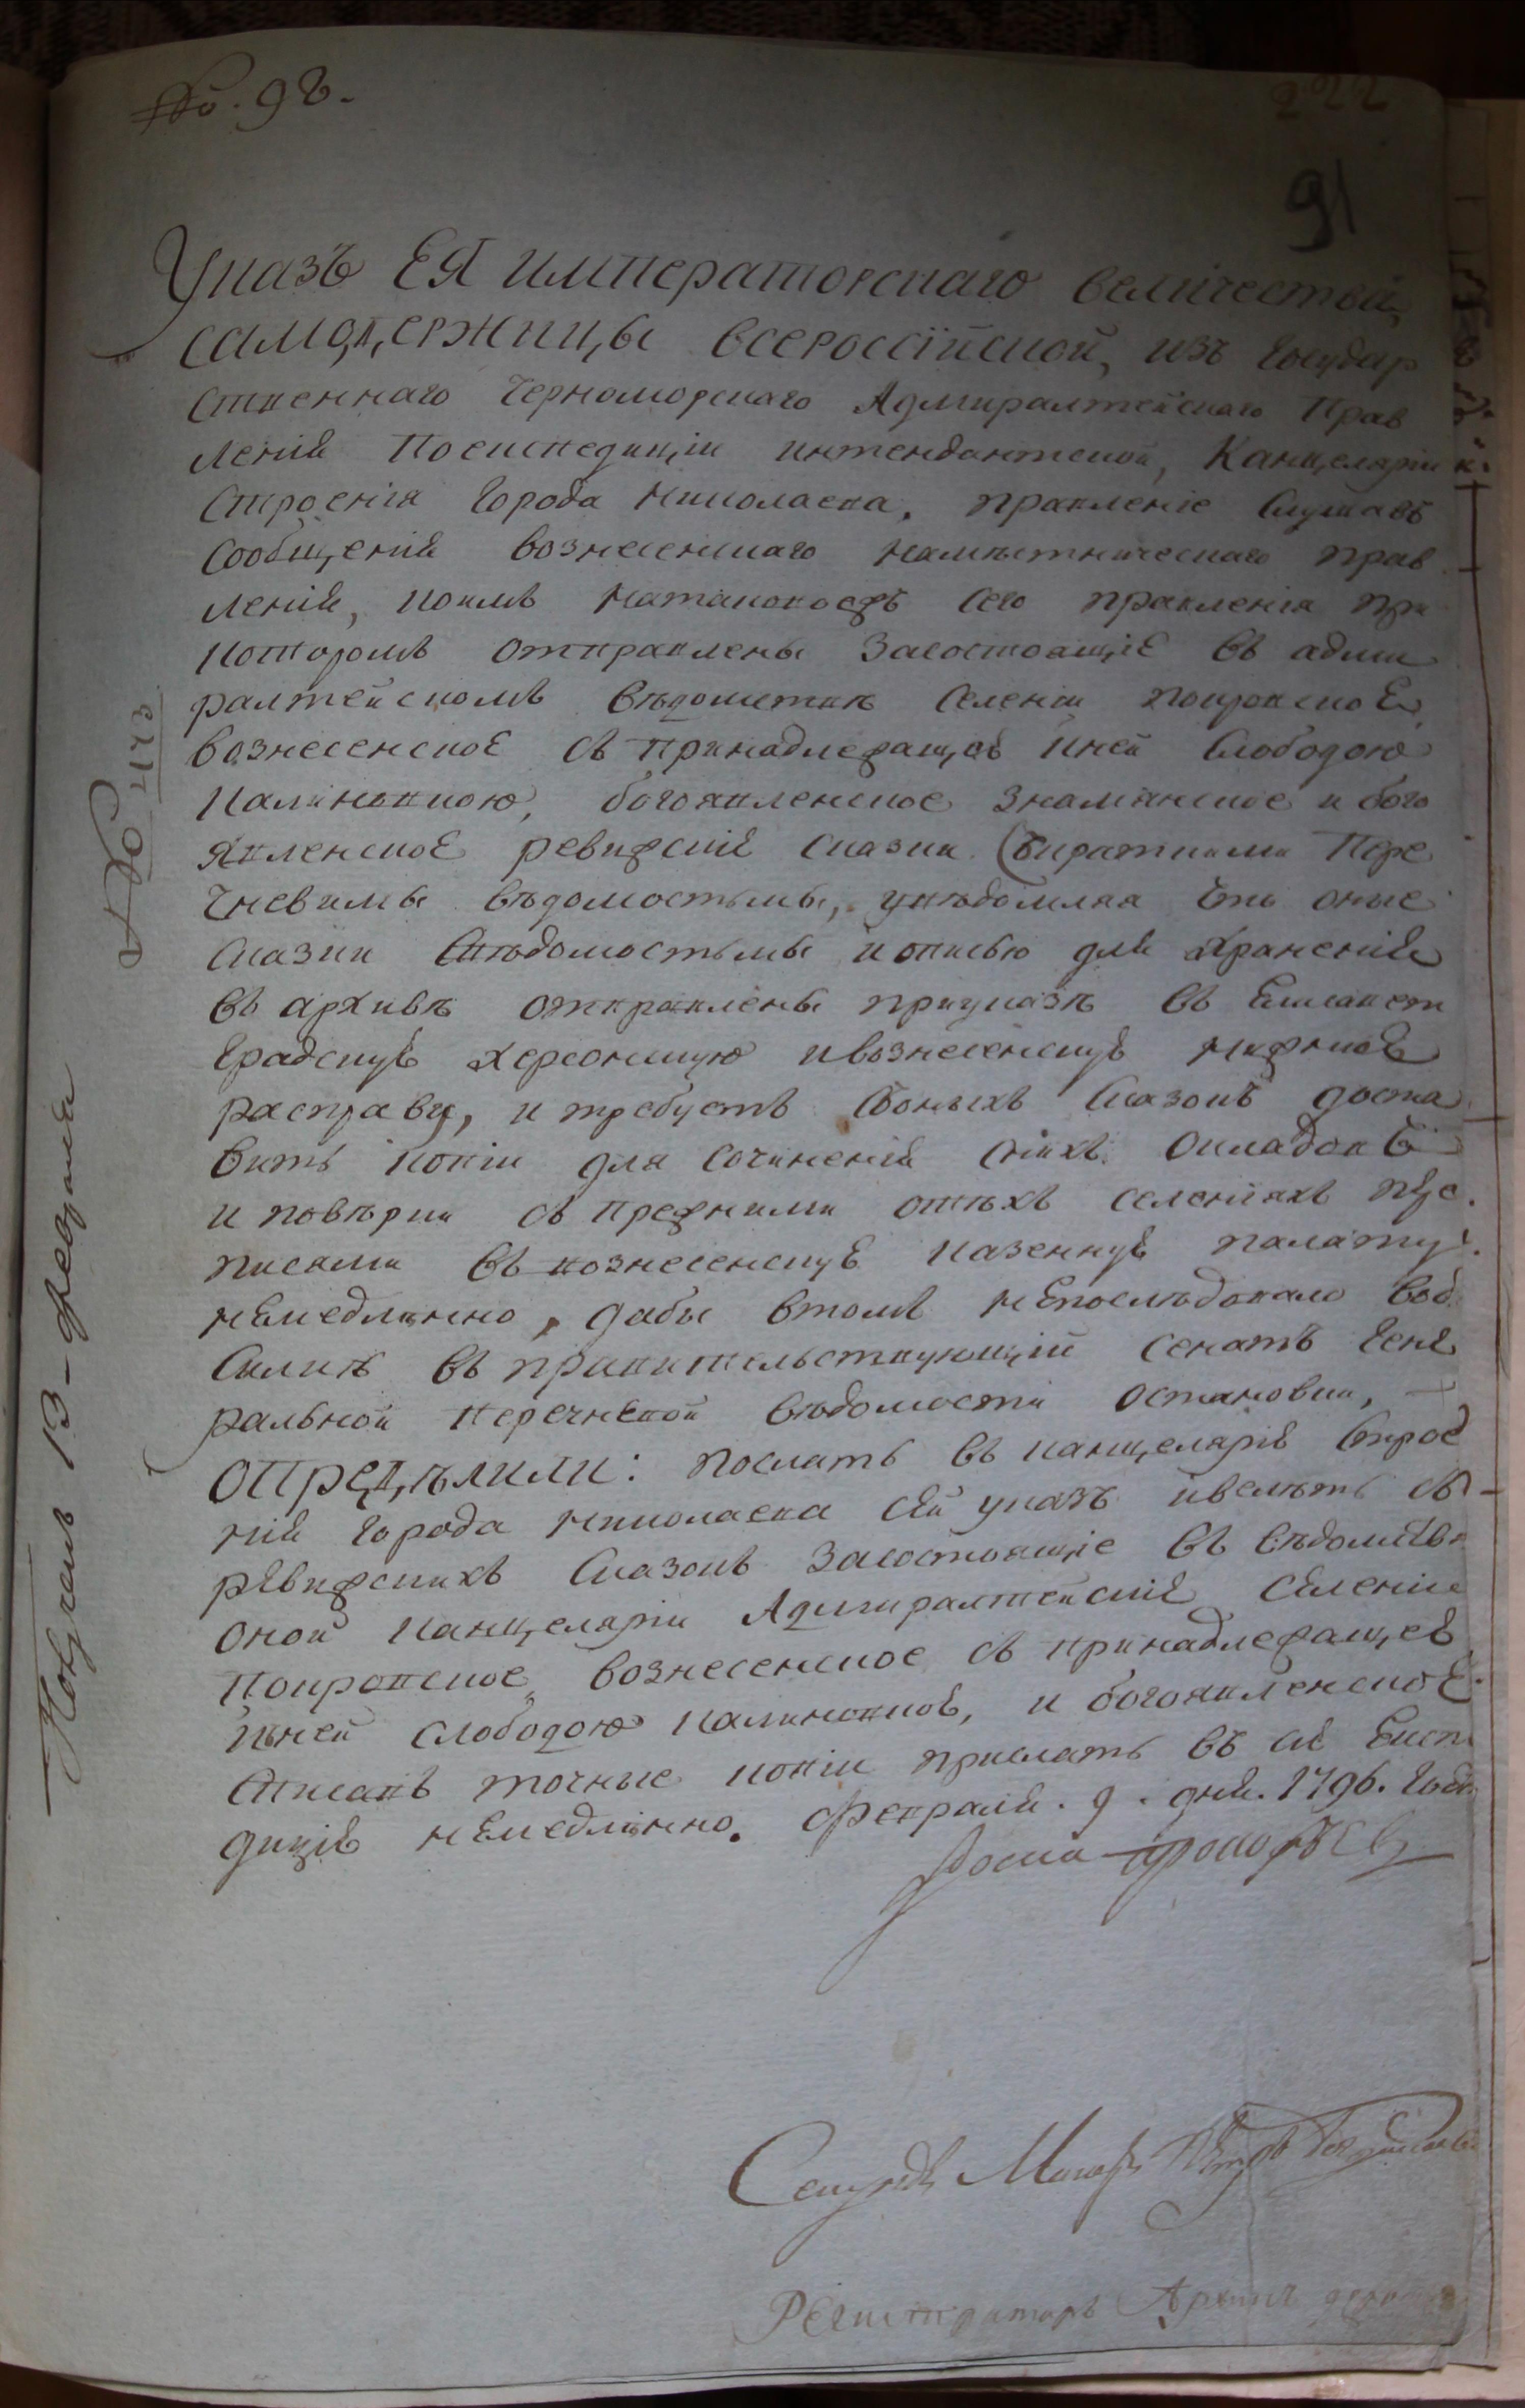 №. 98.
91
Указъ ЕЯ императорскаго величества,
самодержицы всероссїйской, изъ государ
ственнаго черноморскаго Адмиралтейскаго прав
ленія поекспедиціи интендантской, Канцеляріи
строенія города николаева. правленіе слушавъ
сообщенія вознесенскаго намѣстническаго прав
ленія, коимъ сего правленія при
которомъ отправлены засостоящіе въ адми
ралтейскомъ вѣдомствѣ селеніи покровское,
вознесенское съ принадлежащею кней слободою
калиновкою, богоявленское знаменское и бого
явленское ревижскіе сказки скраткими Пере
чневымы вѣдомостьмы, увѣдомляя что оные
сказки свѣдомостьмы и описью для храненія
въ архивѣ отправлены приуказѣ въ Елисавет
градскую херсонскую ивознесенскую нижнюю
расправы, и требуетъ соныхъ сказокъ доста
вить копіи для сочиненія сихъ окладовъ
и повѣрки съ прежними отѣхъ селеніяхъ пере
писами въ вознесенскую казенную палату
немедлѣнно, дабы втомъ непослѣдовало
силкѣ въ правительствующій сенатъ гене
ральной перечневой вѣдомости остановки,
опредѣлили: послать въ канцелярію строе
нія города николаева сей указъ ивелѣть съ
ревижскихъ сказокъ засостоящіе въ вѣдомствѣ
оной канцеляріи Адмиралтейскіе селеніи
покровское, вознесенское съ принадлежащею
кней слободою калиновкою, и богоявленское
списавъ точные копіи прислать въ сію Експе
дицію немедлѣнно. февраля. 9. дня. 1796. года
Секундъ Маіоръ Петръ
Регистраторъ Архипъ
№ 473
Полученъ 13 февраля